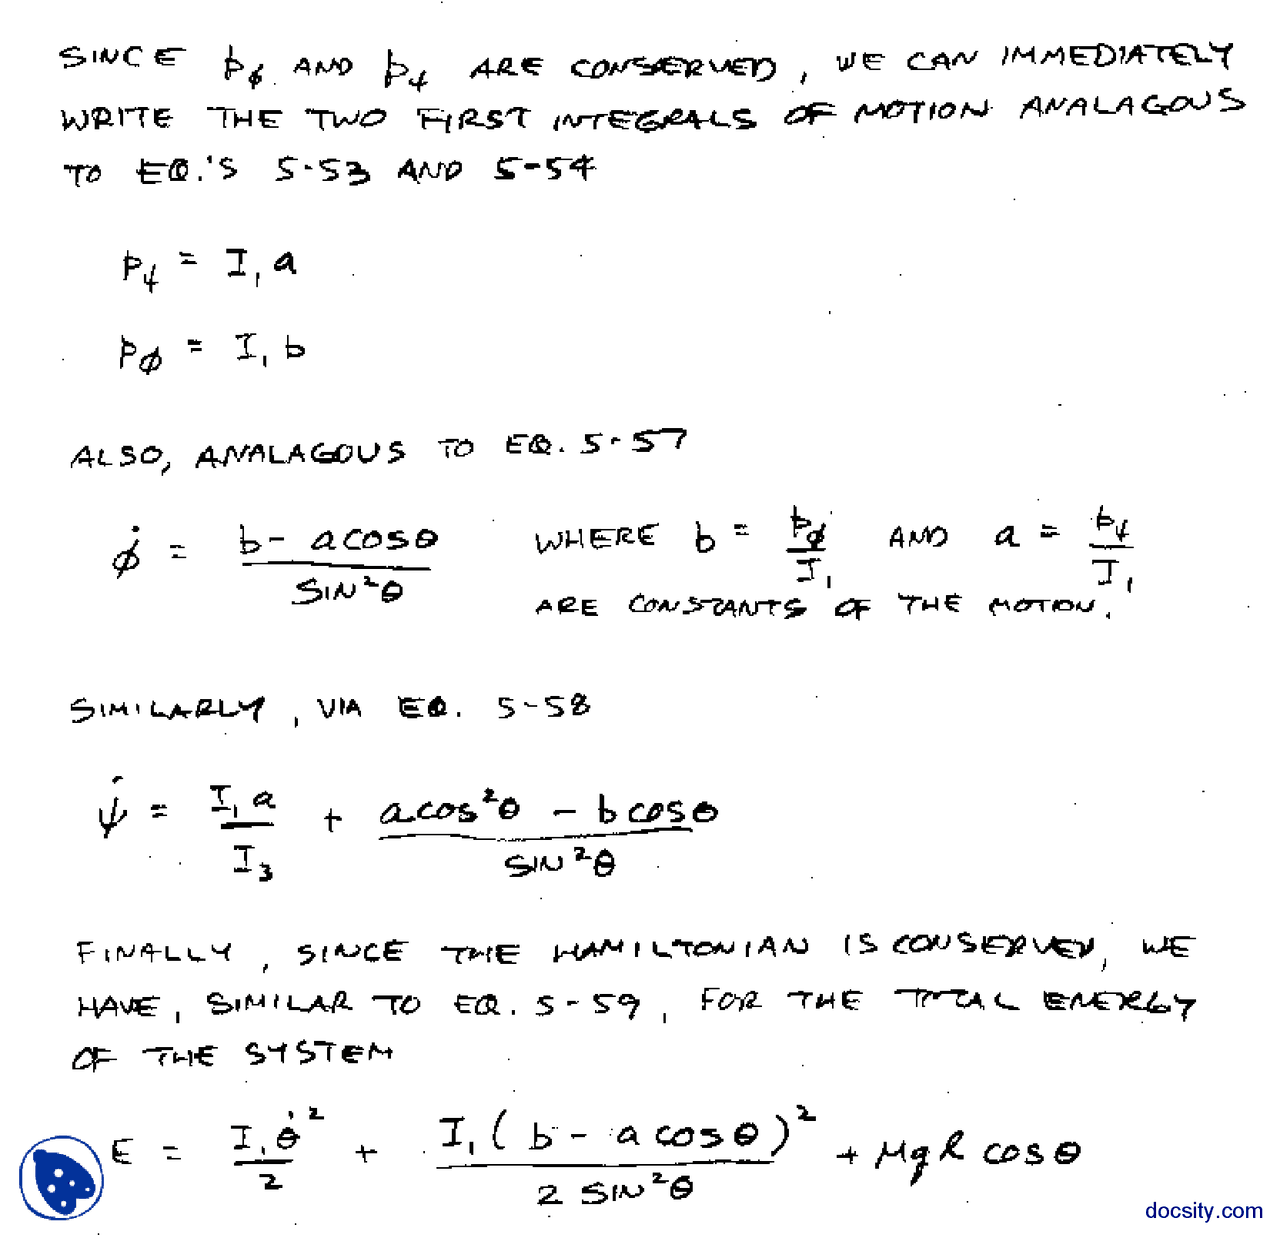 SINCE pϕ AND pψ ARE CONSERVED, WE CAN IMMEDIATELY
WRITE THE TWO FIRST INTEGRALS OF MOTION ANALAGOUS
TO EQ.'S 5-53 AND 5-54
pψ = I₁a
pϕ = I₁b
ALSO, ANALAGOUS TO EQ. 5-57
ϕ̇ = (b - a cosθ) / sin²θ WHERE b = pϕ/I₁ AND a = pψ/I₁
ARE CONSTANTS OF THE MOTION.
SIMILARLY, VIA EQ. 5-58
ψ̇ = I₁a/I₃ + (a cos²θ - b cosθ) / sin²θ
FINALLY, SINCE THE HAMILTONIAN IS CONSERVED, WE
HAVE, SIMILAR TO EQ. 5-59, FOR THE TOTAL ENERGY
OF THE SYSTEM
E = I₁θ̇²/2 + I₁(b - a cosθ)² / (2 sin²θ) + Mgl cosθ
docsity.com